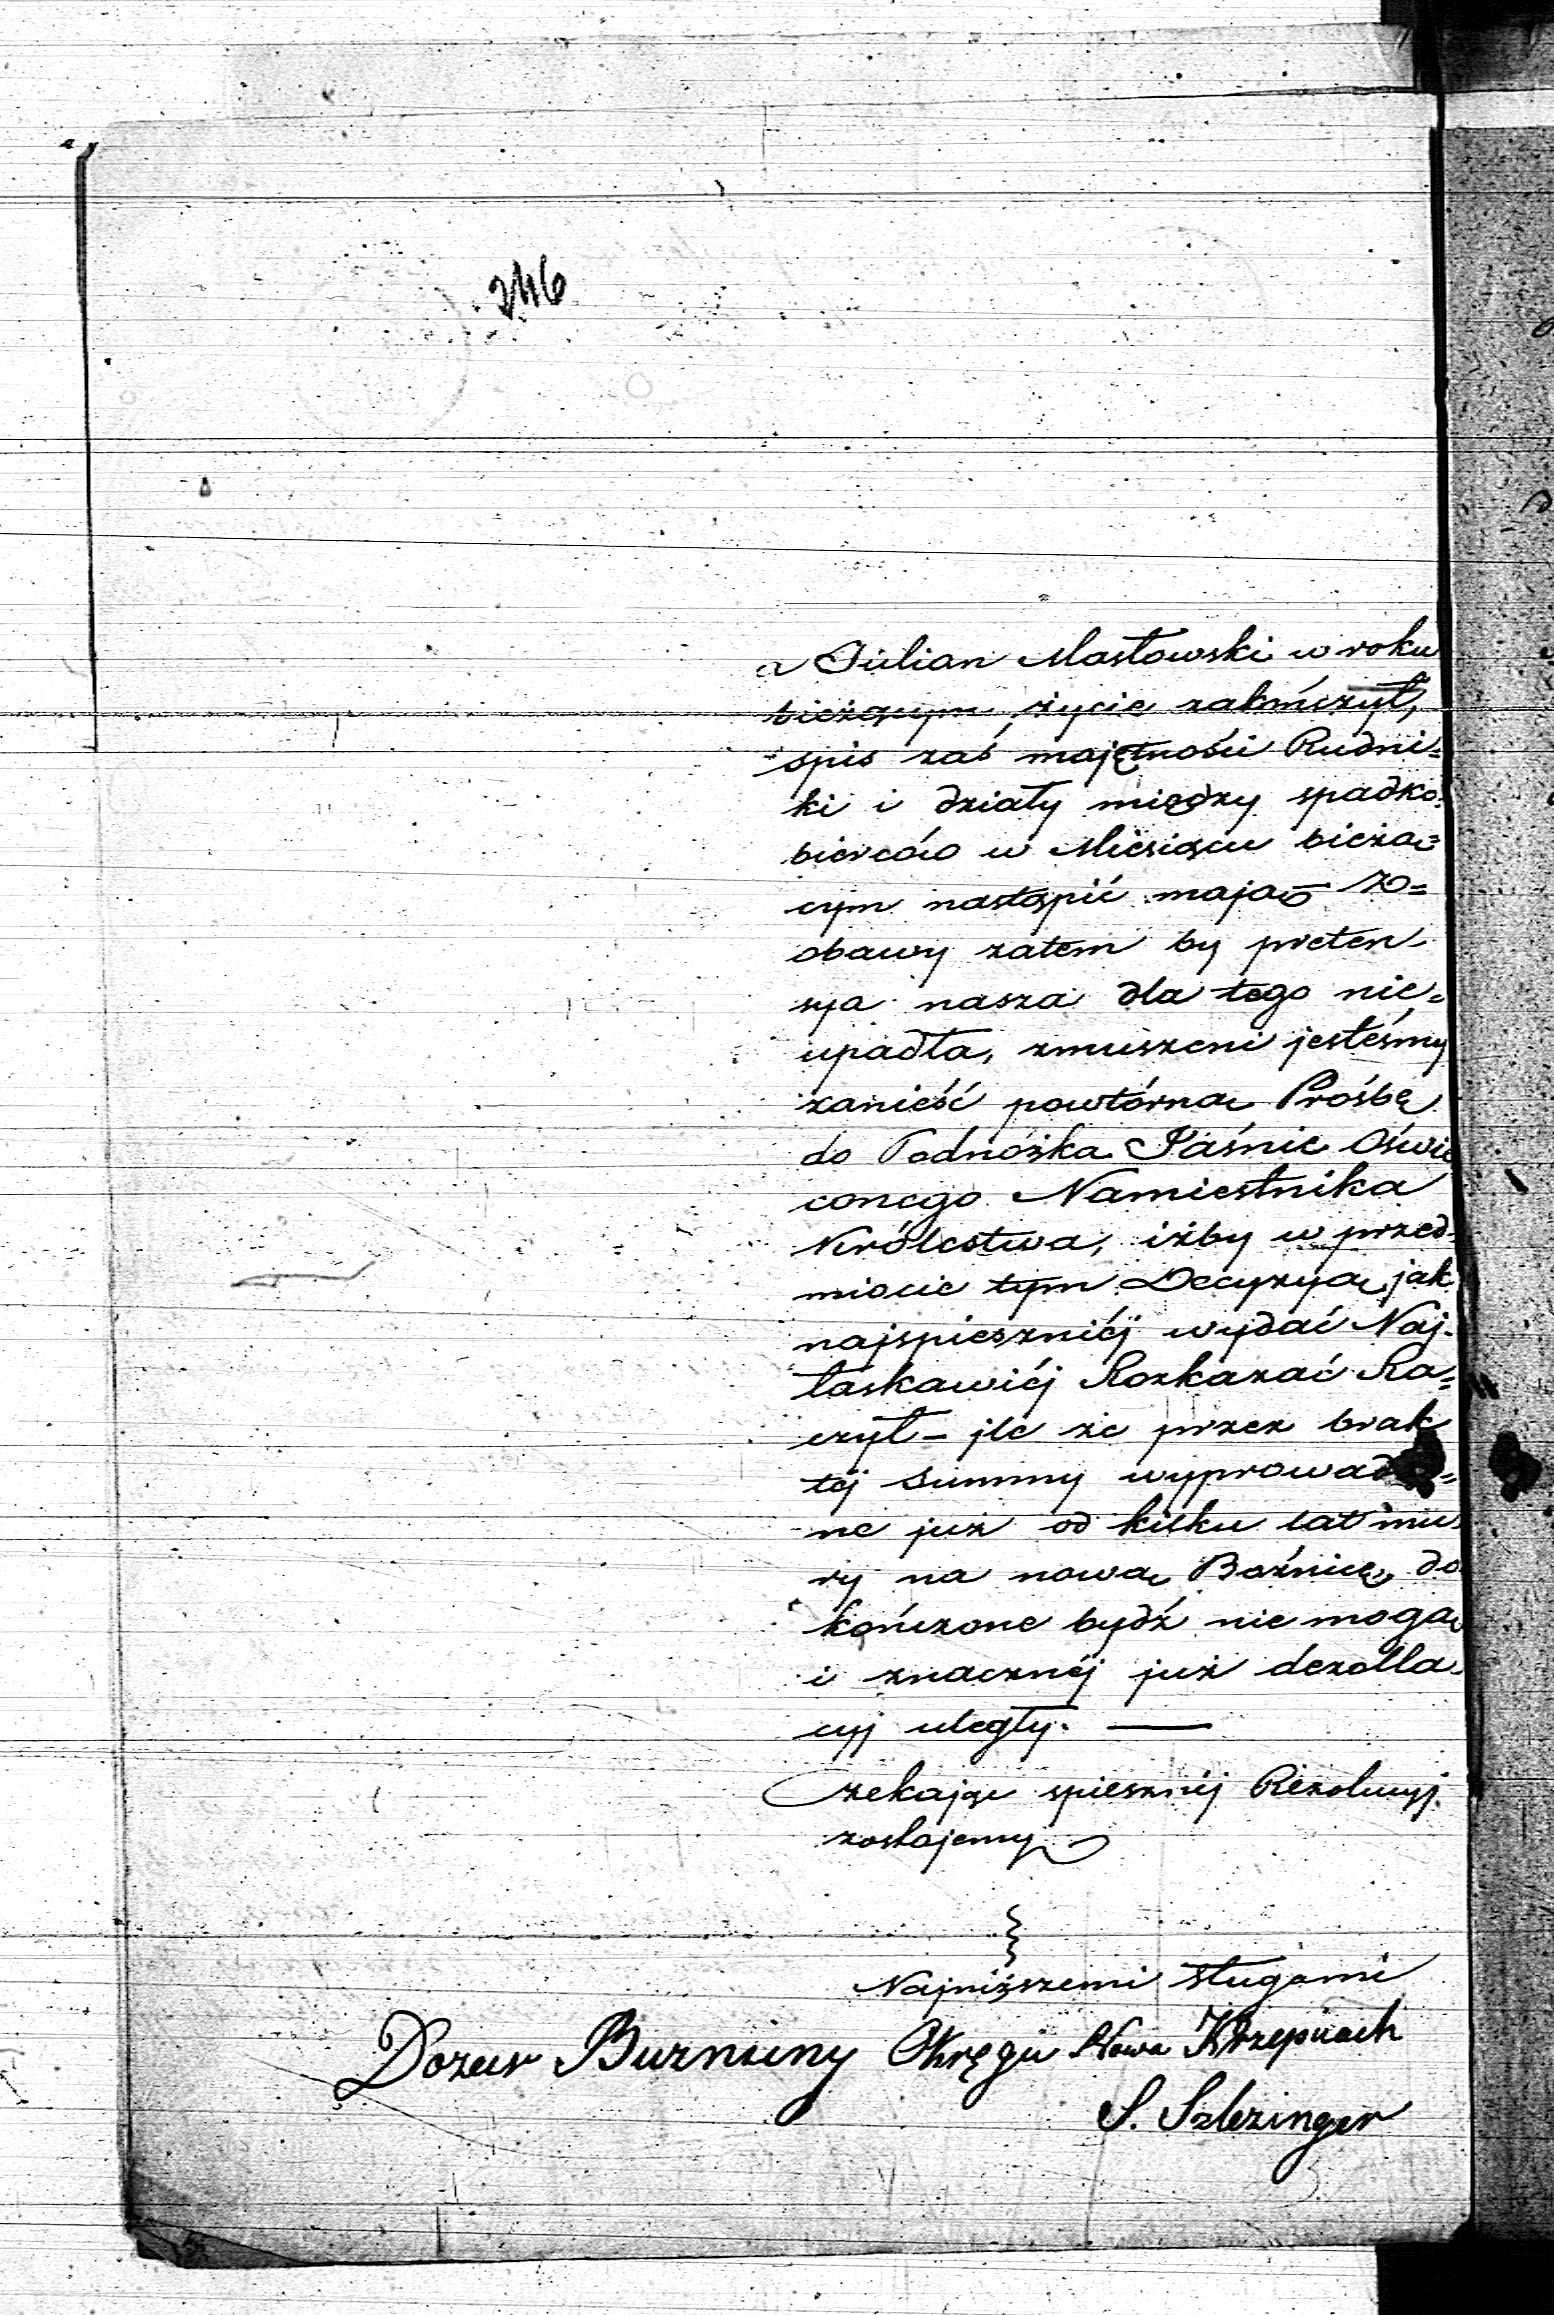 246
a Julian Masłowski w roku
bieżącym życie zakończył,
spis zaś majętności Rudni=
ki i działy między spadko=
bierców w Miesiącu bieżą=
cym nastąpić mają Z
obawy zatem by preten-
sya nasza dla tego nie=
upadła, zmuszeni jesteśmy
zanieść powtórną Prośbę
do Podnóżka Jaśnie Oświe
conego Namiestnika
Królestwa, iżby w przed=
miocie tym Decyzyą jak
najspieszniéj wydać Naj-
łaskawiéj Rozkazać Ra=
czył – jle że przez brak
téj Summy wyprowadzo=
ne już od kilku lat mu=
ry na nową Bożnicę, do
kończone bydź nie mogą
i znacznéj już dezolla=
cyj uległy. —
Czekając spiesznéj Rezolucyj
zostajemy
Najniższemi sługami
Dozur Buznicny Okręgu Nowa Krzepicach
S. Szlezinger